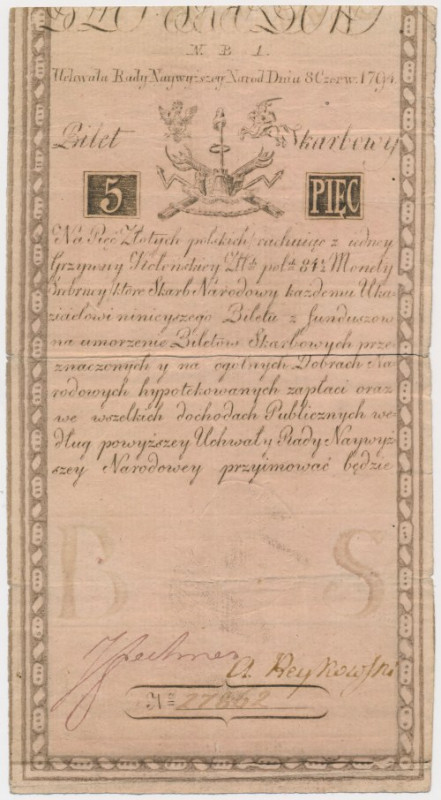 N B 1.
Uchwała Rady Naywyższey Narod. Dnia 8 Czerw. 1794.
Bilet Skarbowy
5 PIĘC
Na Pięc Złotych polskich rachuiąc z iedney
Grzywny Kolońskiey Złt. pol. 84½ Monety
Srebrney, ktore Skarb Narodowy każdemu Uka
zicielowi ninieyszego Biletu z funduszow
na umorzenie Biletów Skarbowych prze
znaczonych y na ogolnych Dobrach Na
rodowych hypotekowanych zapłaci oraz
we wszelkich dochodach Publicznych we
dług powyższey Uchwały Rady Naywyż
szey Narodowey przyimować będzie
A Reykowski
Nº 27862